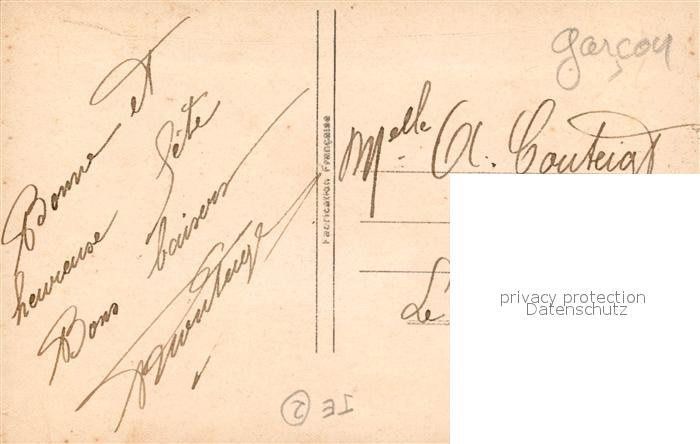 Bonne et
heureuse fête
Bons baisers
Fabrication Française
garçon
Melle A.
Le
privacy protection
Datenschutz
IE 2